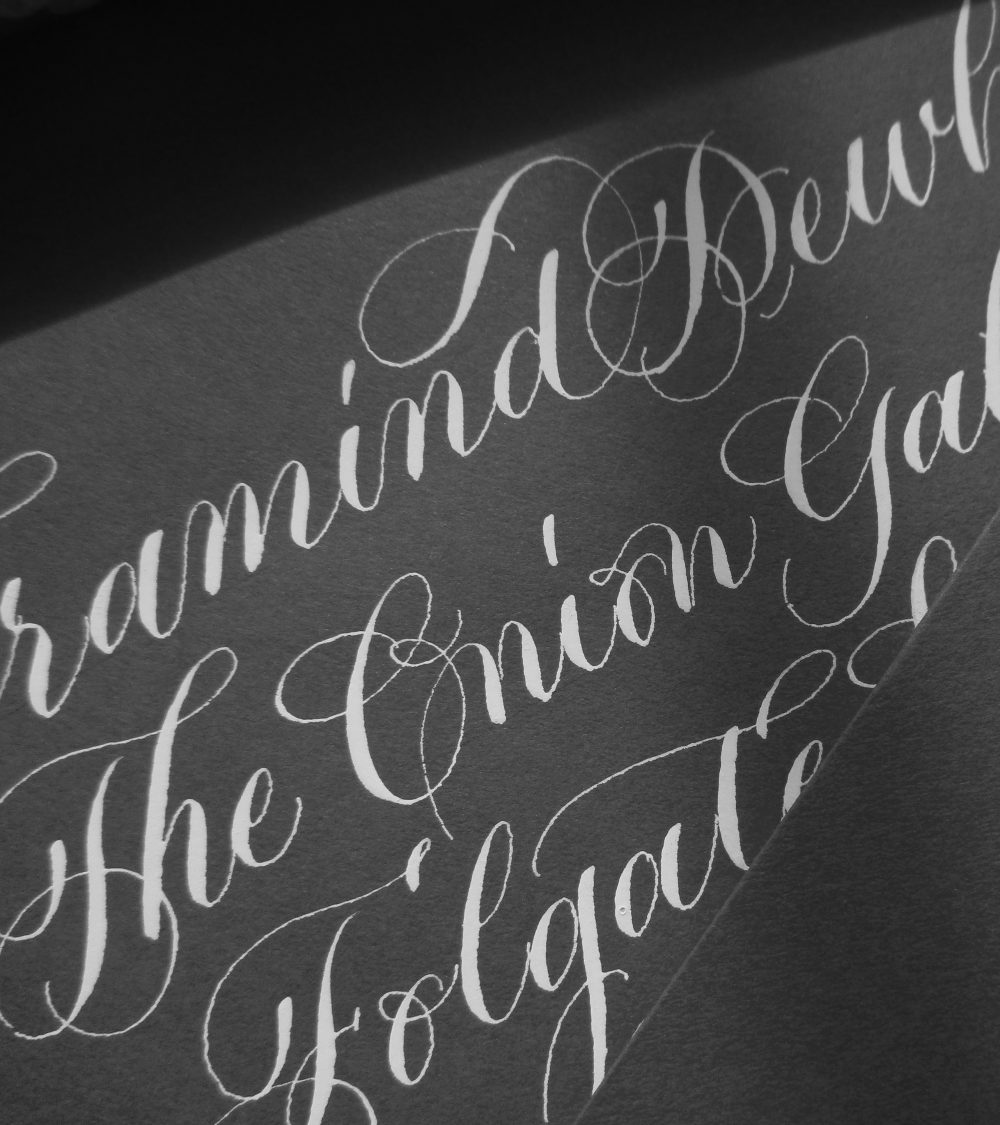 ramind Dewh
The Onion Gal
Folgate